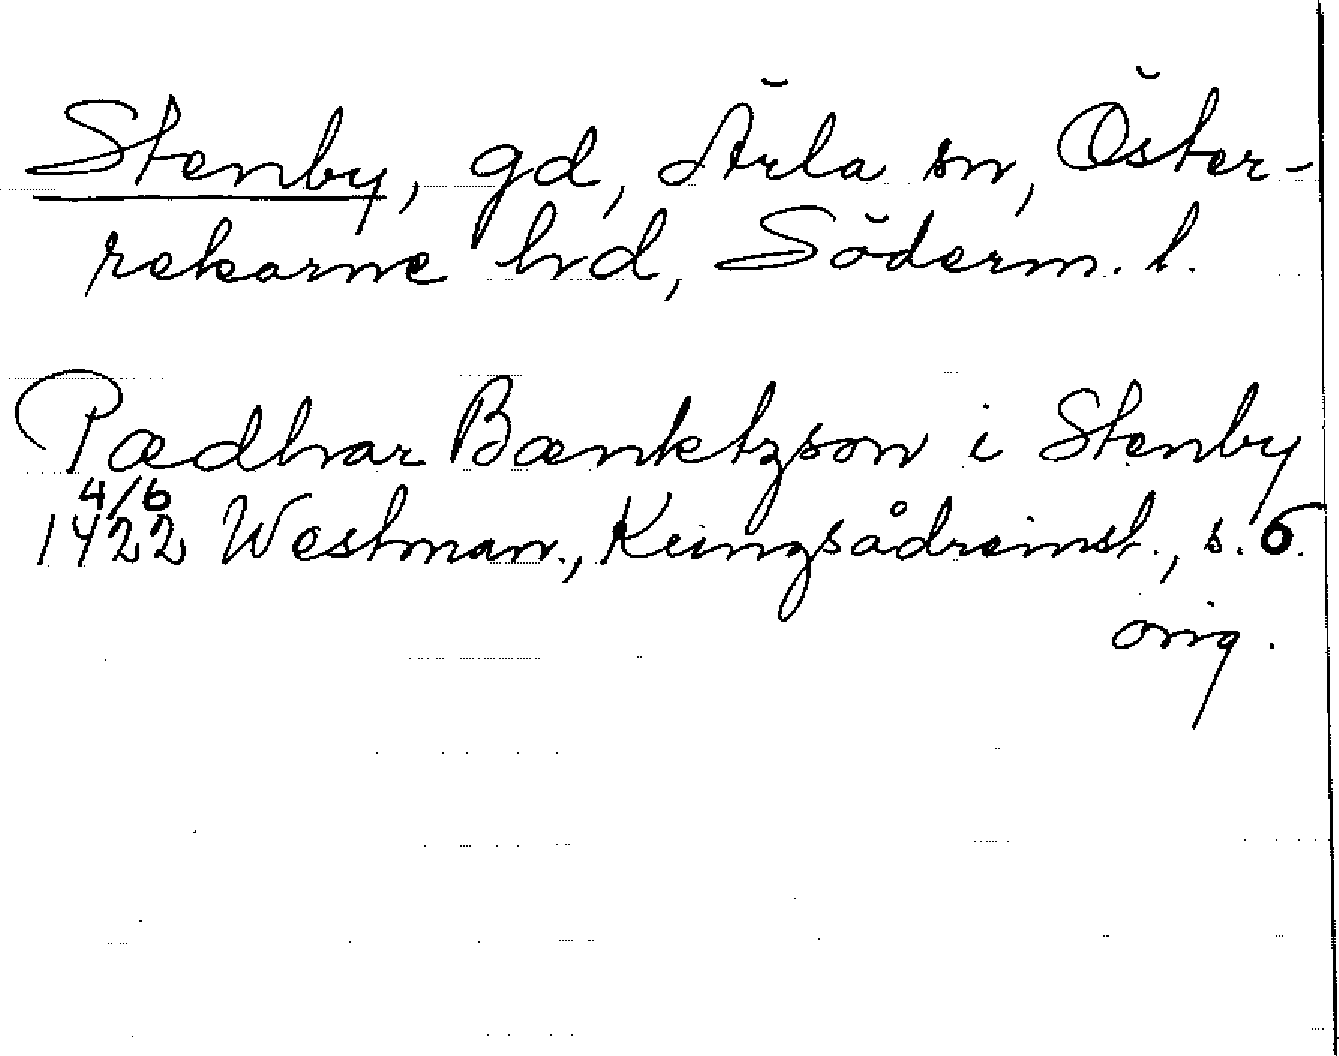 Stenby, gd, Ärla sn, Öster-
rekarne hrd, Söderm. l.
Pædhar Bænktzson i Stenby
4/6
1422 Westman., Kungsådreinst., s. 6.
orig.